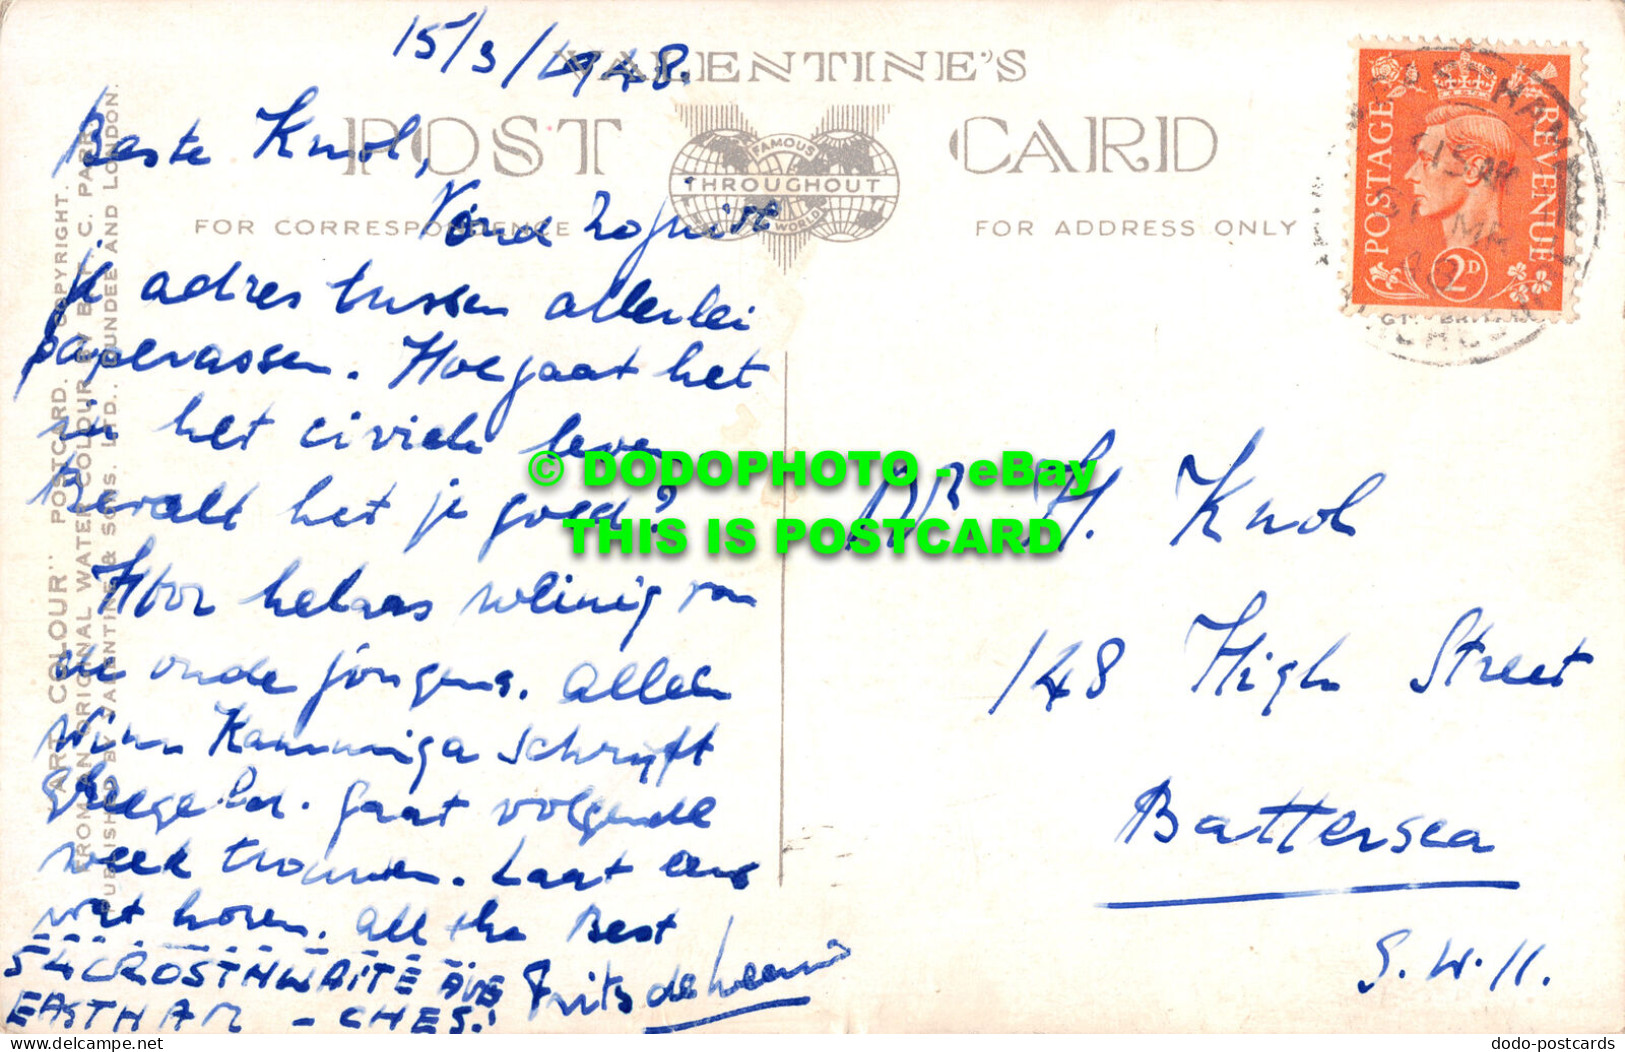 15/3/1948.
VALENTINE'S
POST CARD
FAMOUS
THROUGHOUT
WORLD
FOR CORRESPONDENCE
FOR ADDRESS ONLY
Beste Knol,
Vond zojuist
je adres tussen allerlei
paperassen. Hoe gaat het
in het civiele leven.
Bevalt het je goed?
Hoor helaas weinig van
de oude jongens. Alleen
Wim Kamminga schrijft
geregeld. Gaat volgende
week trouwen. Laat eens
wat horen. All the Best
Frits de
54 CROSTHWAITE AVE
EASTHAM - CHES.
H. Knol
148 High Street
Battersea
S.W.11.
"ART COLOUR" POSTCARD. COPYRIGHT.
FROM AN ORIGINAL WATER COLOUR BY B. C.
PUBLISHED BY VALENTINE & SONS. LTD., DUNDEE AND LONDON.
POSTAGE
REVENUE
2D
© DODOPHOTO - eBay
THIS IS POSTCARD
www.delcampe.net
dodo-postcards